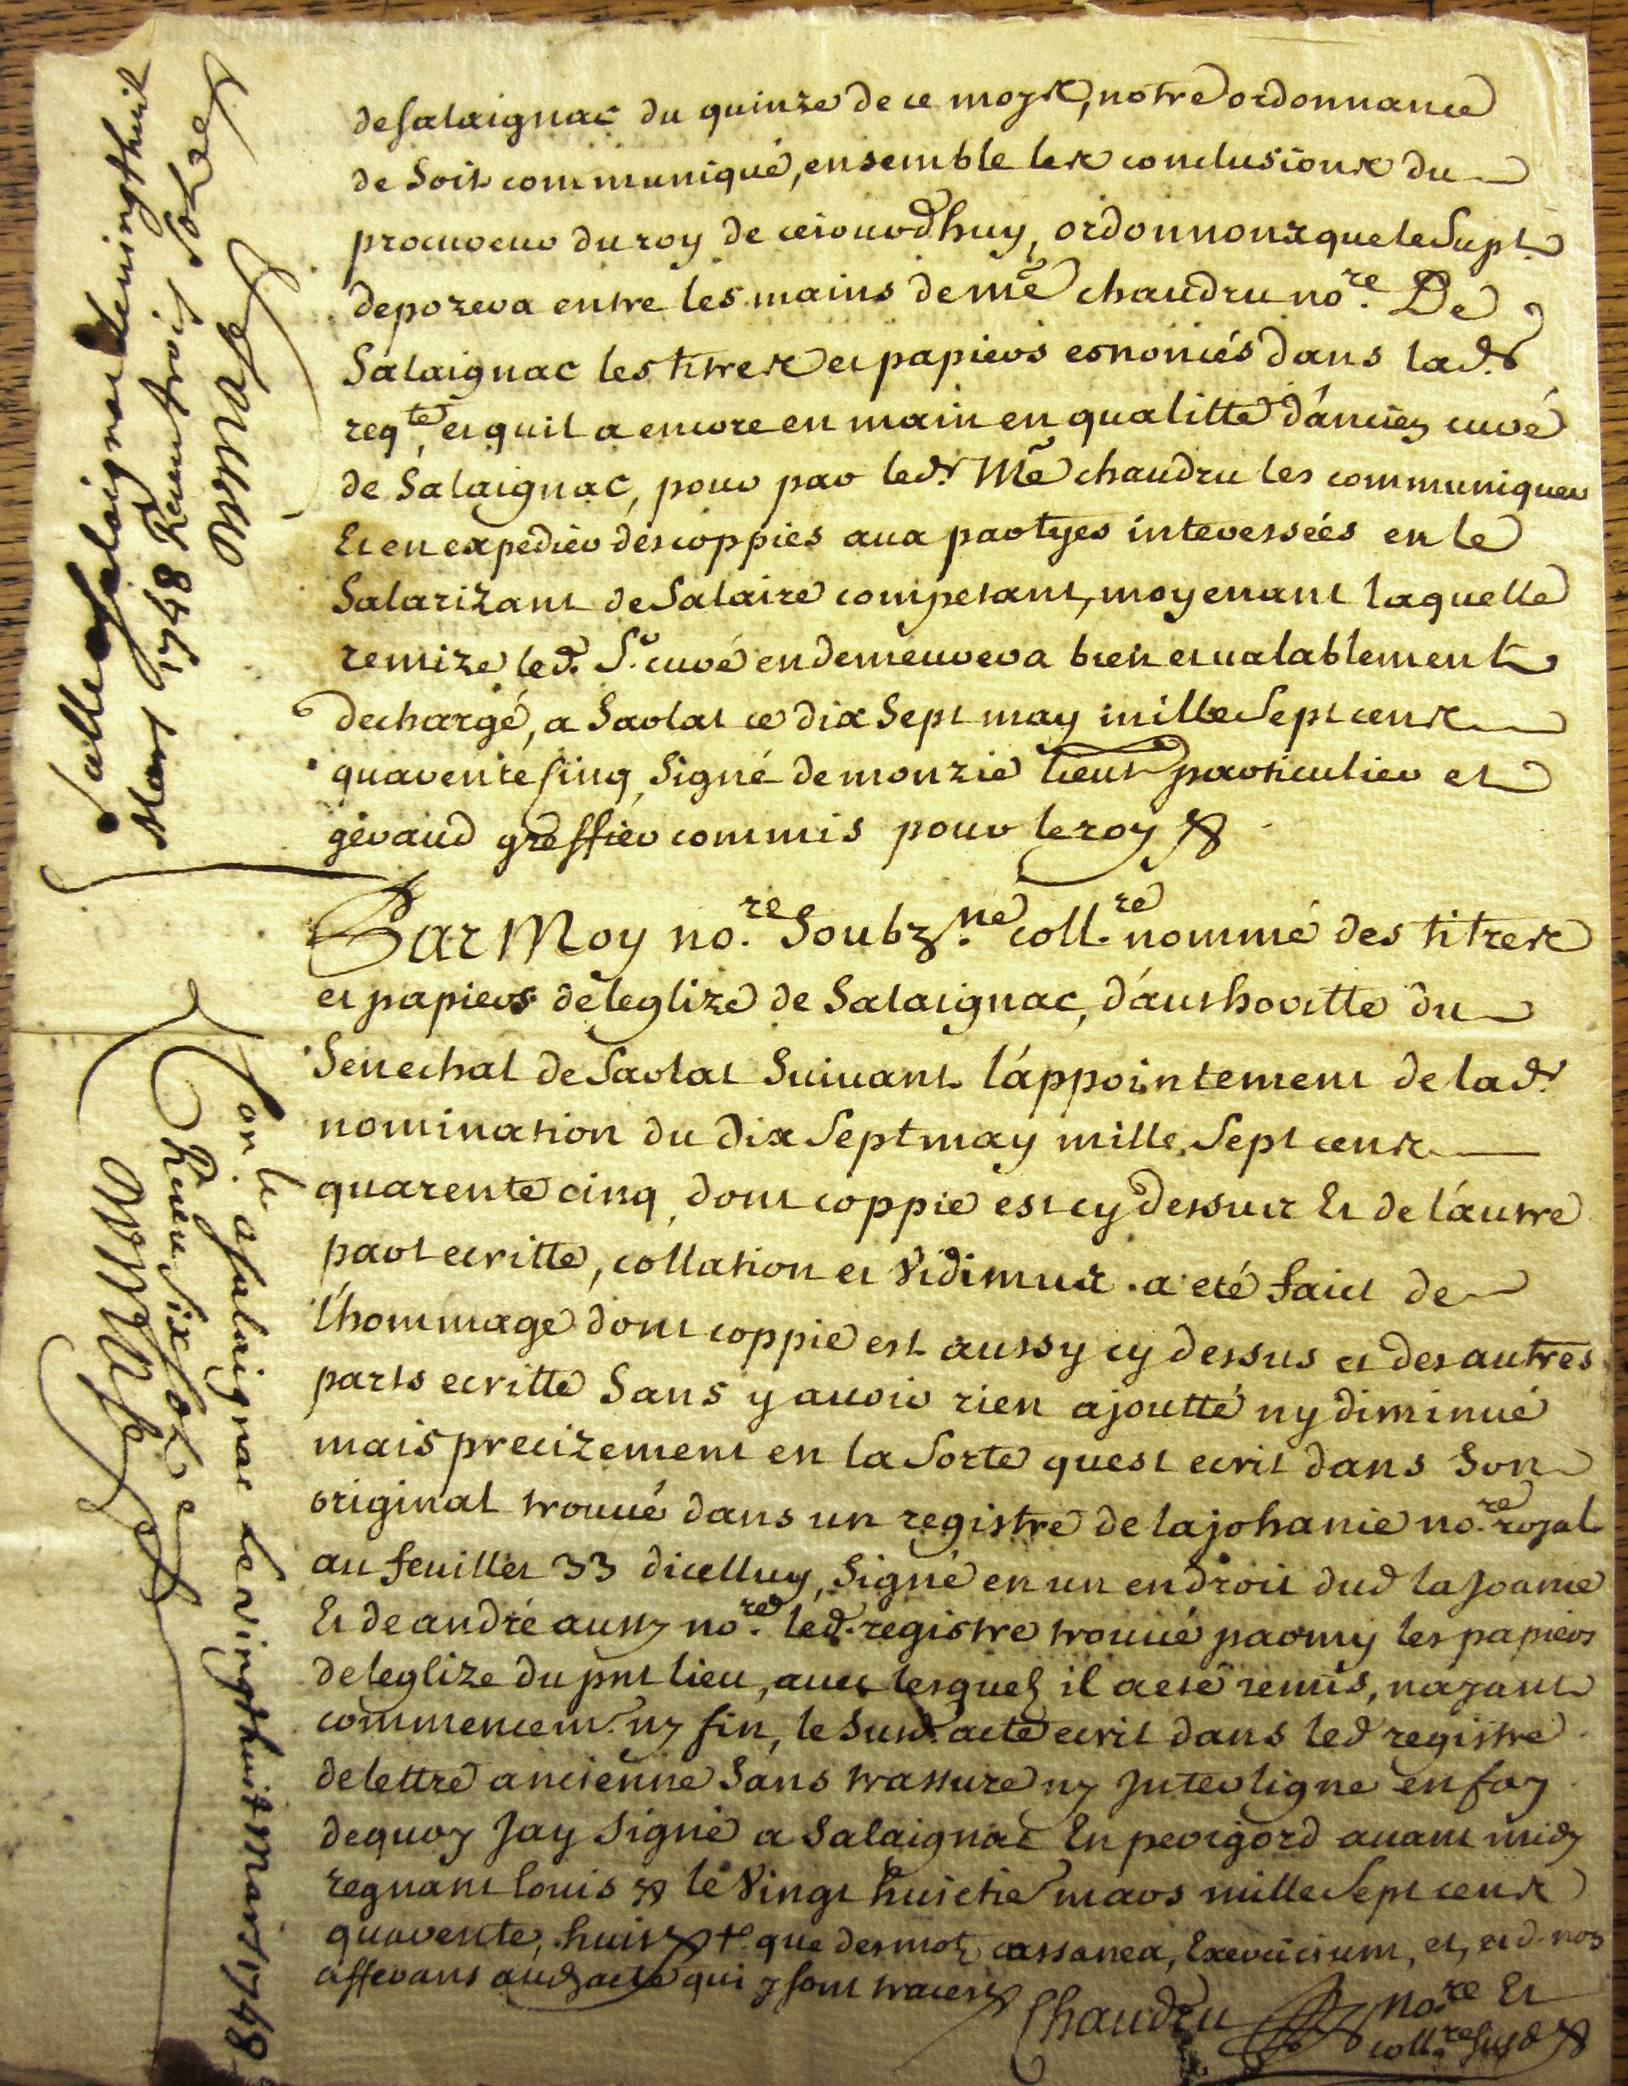 de salaignac du quinze de ce moys, notre ordonnance
de soit communiqué, ensemble les conclusions du
procureur du roy de cejourdhuy, ordonnons que le supt.
depozera entre les mains de me chaudru nore. De
Salaignac les titres et papiers esnoncés dans lad.
reqte, et quil a encore en main en qualitte d'ancien curé
de Salaignac, pour par led. Me chaudru les communiquer
Et en expedier des coppies aux partyes interessées en le
Salarizant de Salaire competant, moyenant laquelle
remize led. Sr. curé en demeurera bien et valablement
dechargé, a Sarlat ce dix Sept may mille Sept cens
quarente sinq, Signé demonzie lieut particulier et
géraud greffier commis pour le roy
Par Moy nore. Soubzne. collre. nommé des titres
et papiers de leglize de Salaignac, d'authoritte du
Senechal de Sarlat Suivant l'appointement de lad.
nomination du dix Sept may mille Sept cens
quarente cinq, dont coppie est cy dessus Et de l'autre
part ecritte, collation et Vidimus a eté faict de
l'hommage dont coppie est aussy cy dessus et des autres
parts ecritte Sans y avoir rien ajoutté ny diminué
mais precizement en la Sorte quest ecrit dans Son
original trouvé dans un registre de lajohanie nore. royal
au feuillet 33 dicelluy, Signé en un endroit dud lajoanie
Et de andré aussy nore. led. registre trouvé parmy les papiers
de leglize du pnt lieu, avec lesquels il a eté remis, nayant
commencemt. ny fin, le susd. acte ecrit dans led registre
de lettre ancienne Sans trassure ny Interligne en foy
dequoy Jay Signé a Salaignac En perigord avant midy
regnant louis le Vingt huictie mars mille Sept cens
quarente, huit que des motz cassanea, Exercicium, et,
afferans aud acte qui y sont traces
Chaudru nore Et
collre susd
Salaignac le vingt huit
Mars 1748 Receu trois
Conlé a salaignac le vingt huit Mars 1748
Receu six